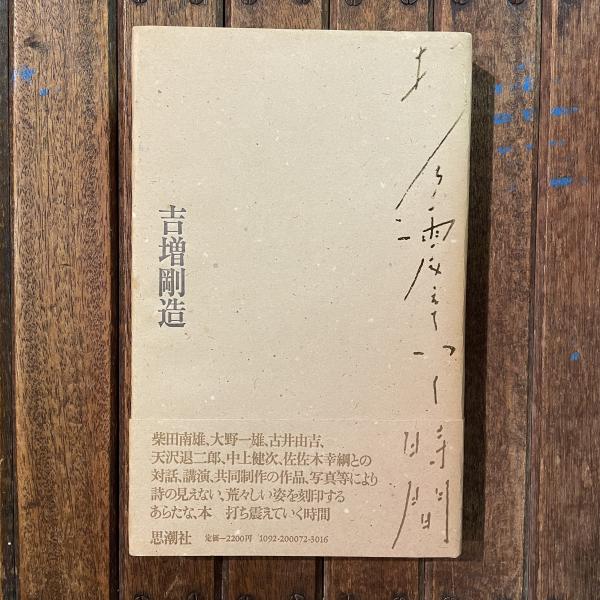 打ち震えていく時間
吉増剛造
柴田南雄、大野一雄、古井由吉、
天沢退二郎、中上健次、佐佐木幸綱との
対話、講演、共同制作の作品、写真等により
詩の見えない、荒々しい姿を刻印する
あらたな、本　打ち震えていく時間
思潮社　定価—2200円　1092-200072-3016